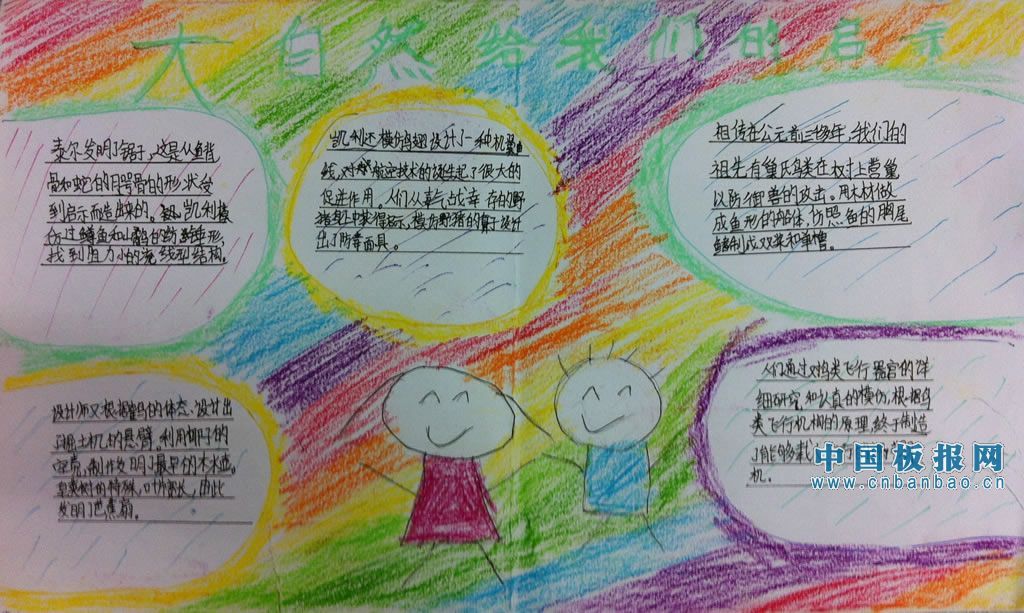 大自然给我们的启示
泰尔发明了锯子,这是从鱼背
骨和蛇的腭骨的形状受
到启示而造出来的。凯利模
仿过鳟鱼和山鹬的纺锤形,
找到阻力小的流线型结构。
凯利还模仿鸟翅设计了一种机翼曲
线,对航空技术的诞生起了很大的
促进作用。人们从毒气战幸存的野
猪身上获得启示,模仿野猪的鼻子设计
出了防毒面具。
相传在公元前三千多年,我们的
祖先有巢氏鸟类在树上营巢
以防御兽的攻击。用木材做
成鱼形的船体,仿照鱼的胸尾
鳍制成双桨和单橹。
设计师又根据的体态,设计出
了掘土机的悬臂,利用椰子的
空壳,制作发明了最早的木水壶。
芭蕉树的特殊,叶片长,由此
发明了芭蕉扇。
人们通过对鸟类飞行器官的详
细研究和认真的模仿,根据鸟
类飞行机构的原理,终于制造
了能够载
机。
中国板报网
www.cnbanbao.cn